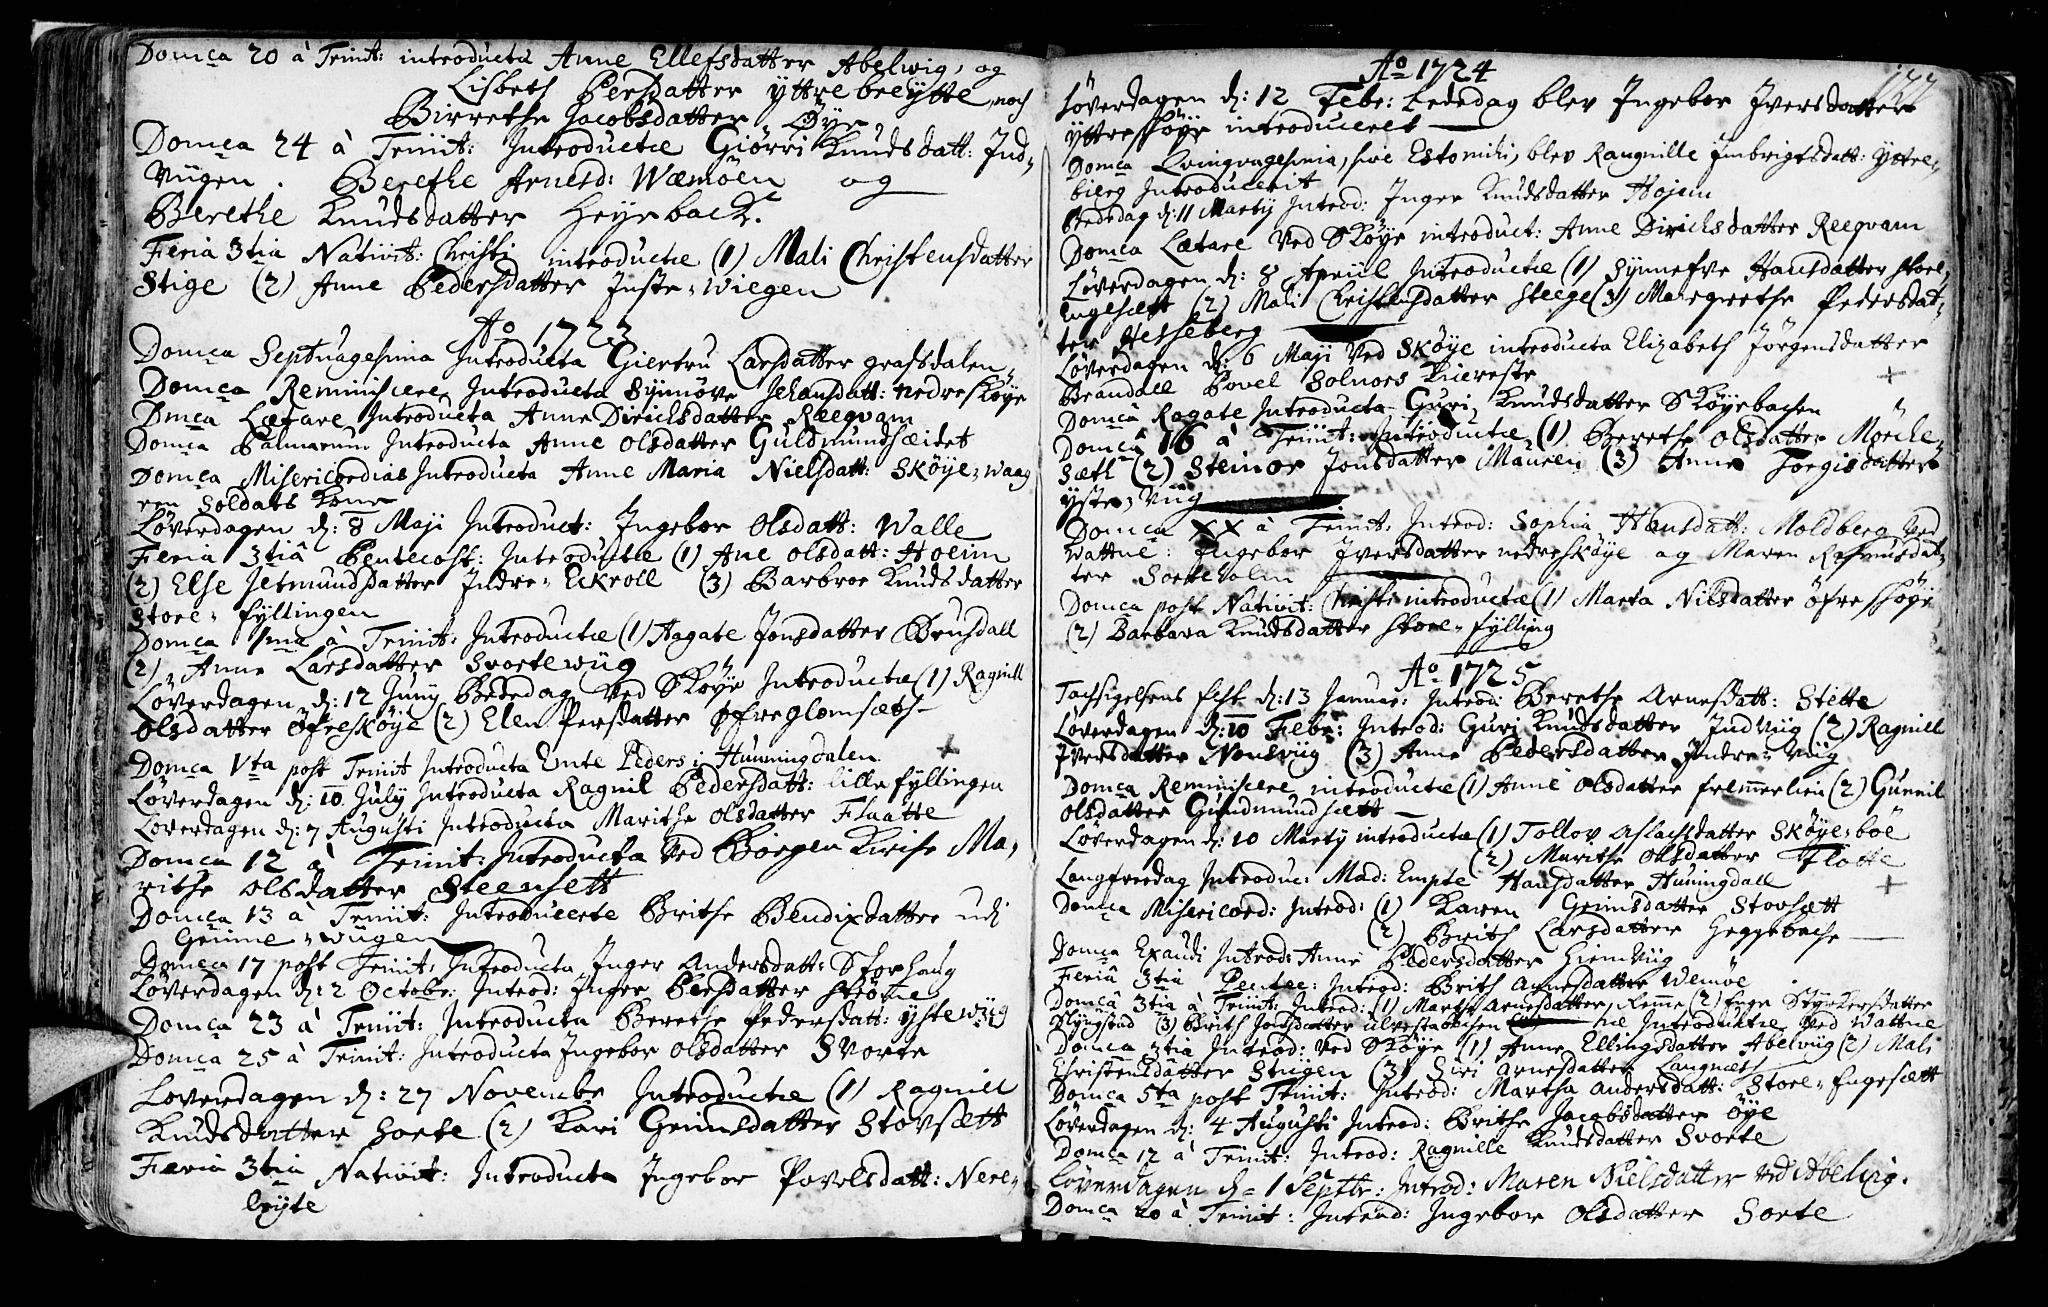 Domca 20 à Trinit: introducta Anne Ellefsdatter Abelwig, og
Lisbeth Persdatter yttrebrytte, noch
Birrethe Jacobsdatter Øye,
Domca 24 à Triniit: Introductæ Giörri Knudsdatt: Ind-
viigen. Berethe Arnesd: Wæmöen og
Berethe Knudsdatter Heyrback.
Feria 3tia Nativit: Christi introductæ (1) Mali Christensdatter
Stige (2) Anne Pedersdatter Juste-wiegen
Ao 1723
Domca Septuagesima Introducta Giertru Larsdatter grafsdalen,
Domca Reminiscere, Introducta Synnöve Johansdatt: nedre sköye
Dmca Lætare Introducta Anne Dirichsdatter Reeqvam
Domca Palmarum Introducta Anne Olsdatter Guldmundsæidet
Domca Misericordias Introducta Anne Maria Nielsdatt: Sköye-waag
ren Soldats Kone
Löverdagen d: 8 Maji Introduct: Ingebor Olsdatt: Walle
Feria 3tiâ Pentecost: Introductæ (1) Ane Olsdatt: Hoeim
(2) Else Jetmundsdatter Indre-Eckroll (3) Barbroe Knudsdatter
Store-fyllingen
Domca 1ma à Trinit: Introductæ (1) Aagate Jonsdatter Brusdall
(2) Anne Larsdatter Svortewiig
Löverdagen d: 12 Junij Bededag Ved Sköye Introductæ (1) Ragnill
Olsdatter Öfresköye (2) Elen Persdatter Øfreglomsæt
Domca Vta post Trinit Introducta Emte Peders i Hunningdalen +
Löverdagen d: 10 July Introducta Ragnil Pedersdatt: lille fyllingen
Löverdagen d: 7 Augusti Introducta Marithe Olsdatter Flaatte
Domca 12 à Trinit: Introducta Ved Borgen Kirke Ma-
rithe Olsdatter Steensett
Domca 13 à Triniit: Introducerte Brithe Bendixdatter udi
Grimme-wiigen
Domca 17 post Trinit: Introducta Inger Andersdatt: Storhaug
Löverdagen d: 2 Octobr: Introd: Inger Persdatter ströme
Domca 23 à Triniit: Introducta Berethe Pedersdatt: ystewiig
Domca 25 à Trinit: Introducta Ingebor Olsdatter Svorte
Löverdagen d: 27 Novembr Introductæ (1) Ragnill
Knudsdatter Sorte (2) Kari Grimsdatter Stovsætt
Feria 3tia Nativit: Introducta Ingebor Povelsdatt: Nere-
bryte
177
Ao 1724
Löverdagen d: 12 Febr: bededag blev Ingebor Iversdatter
yttresköye introduceret
Domca Qvinqvagesima, sive Estomihi, blev Raugnille Imbrigtsdatt: Yttre-
bierg Introducerit
Bededag d: 11 Martij Introd: Inger Knudsdatter Hojem
Domca Lætare Ved Sköye introduct: Anne Dirichsdatter Reeqvam
Löverdagen d: 8 Apriil Introductæ (1) Synnefve Hansdatter store-
Engesætt (2) Mali Christensdatter Steege (3) Maregrethe Pedersdat-
ter Hesseberg
Löverdagen d: 6 Maji Ved Sköye introducta Elizabeth Jörgensdatter
Brandall Povel Solnörs Kiereste +
Domca Rogate Introducta Guri Knudsdatter Sköyebachen
Domcâ 16 à Triniit: Introductæ (1) Berethe Olsdatter Mörche-
Sæth (2) Steinor Jonsdatter Mauren (3) Anne Torgisdatter
yste-viig
Domca XX à Trinit: Introd: Sophia Hansdatt: Moldberg Ved
Wattne: Ingebor Iversdatter nedresköye og Maren Rasmusdat-
ter Sorteholm
Domca post Nativit: Christi introductæ (1) Marta Nilsdatter öfresköye
(2) Barbara Knudsdatter store-fylling
Ao 1725
Tachsigelsens fest d: 13 Januar: Introd: Berethe Arnesdatt: Stette
Löverdagen d: 10 Febr: Introd: Guri Knudsdatter Indviig (2) Ragnill
Iversdatter Nonsviig (3) Anne Pedersdatter Indre-viig
Domca Reminiscere introductæ (1) Anne Olsdatter fremmerlien (2) Gunnil
Olsdatter Gundmundsætt
Löverdagen d: 10 Martij introductæ (1) Tollov Aslachsdatter Sköye-böe
(2) Marithe Olsdatter Flotte
Langfreedag Introduc: Mad: Empte Hansdatter Huningdall +
Domca Misericord: Introd: (1) Karen Grimsdatter Stovsætt
(2) Brith Larsdatter Heggebache
Domca Exaudi Introd: Anne Pedersdatter Hiemviig
Feriâ 3tia Pentec: Introd: Brith Arnesdatter Wemöe
Domcâ 3tia à Triniit: Introd: (1) Marth Arnesdatter Remme (2) Inge Styrkersdatter
Slyngstad (3) Brith Jonsdatter ulvestadbachen næ Introductæ Ved Wattne
Domca 3tia Introd: Ved Sköye (1) Anne Ellingsdatter Abelviig (2) Mali
Christensdatter Stiigen (3) Siri Arnesdatter Langnæss
Domca 5ta post Trinit: Introd: Martha Andersdatt: Store-Engesætt
Löverdagen d: 4 Augusti Introd: Brithe Jacobsdatter Öye
Domca 12 à Trinit: Introd: Ragnille Knudsdatter Svorte
Löverdagen d- 1 Septbr: Introd: Maren Nielsdatter ved Abelvig.
Domca 20 à Trinit: Introd: Ingebor Olsdatter Sorte